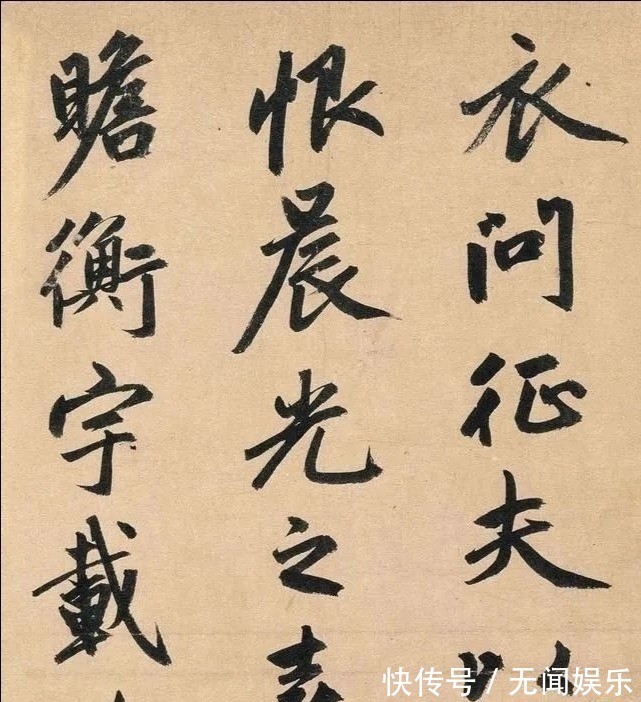 衣问征夫以
恨晨光之熹
瞻衡宇載
快传号/无闻娱乐